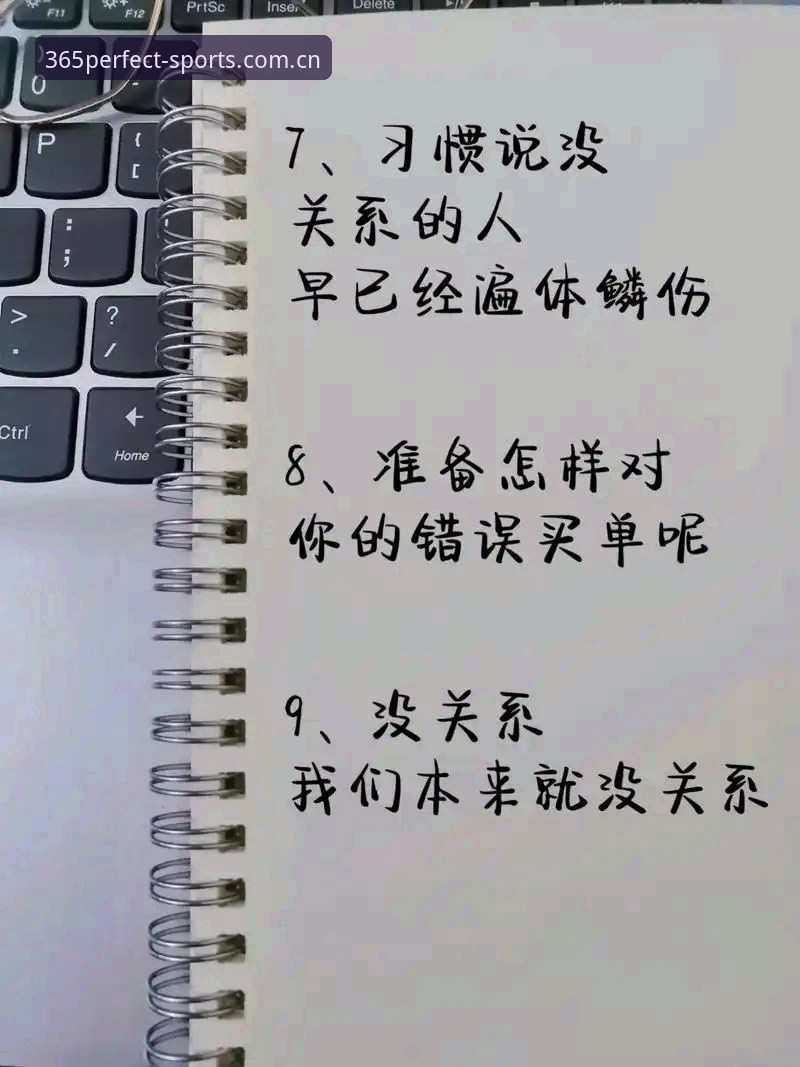 F11
F12
PrtSc
Inser
Delete
365perfect-sports.com.cn
)
0
-
P
{
[
:
;
>
.
?
/
Ctrl
Home
7、习惯说没
关系的人
早已经遍体鳞伤
8、准备怎样对
你的错误买单呢
9、没关系
我们本来就没关系